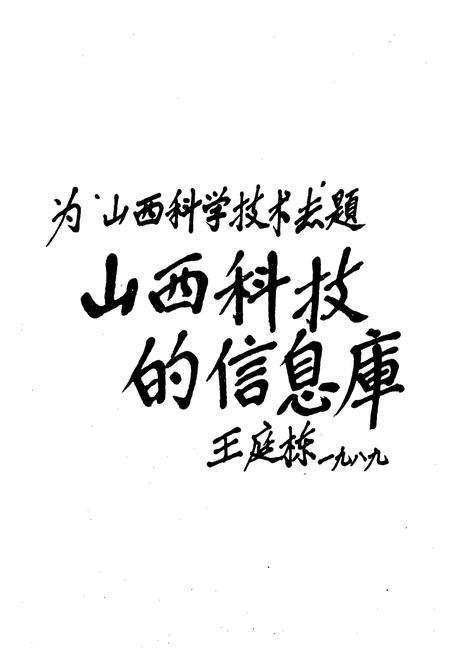 为“山西科学技术志”题
山西科技
的信息庫
王庭栋一九八九